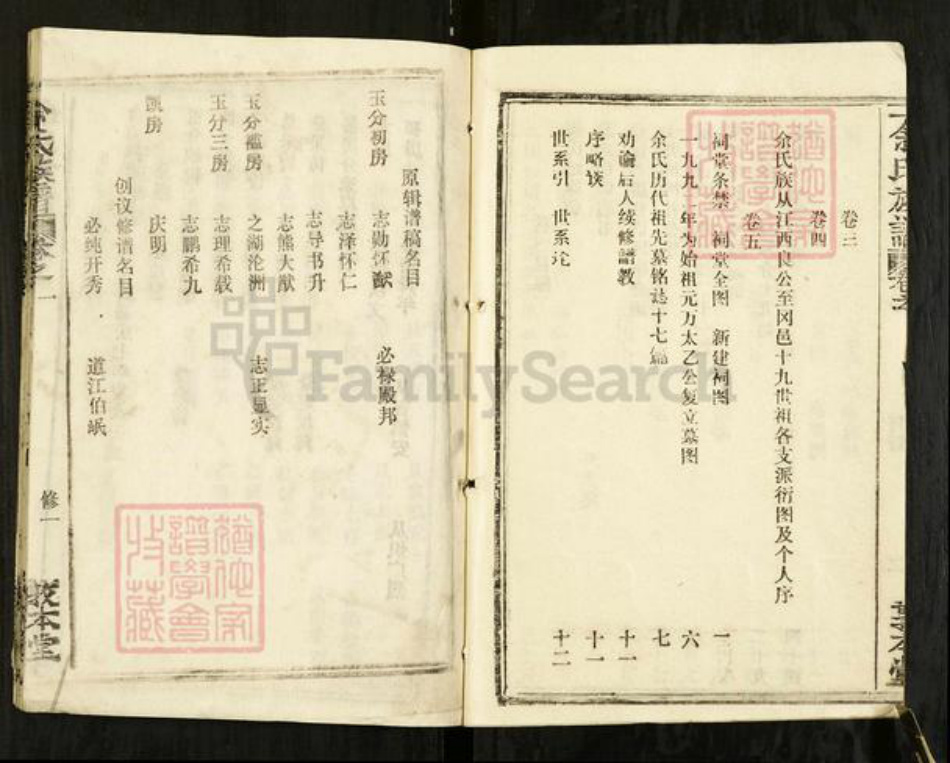 卷三
卷四
余氏族从江西良公至冈邑十九世祖各支派衍图及个人序
卷五
祠堂条禁 祠堂全图 新建祠图 一
一九九 年为始祖元万太乙公复立墓图 六
余氏历代祖先墓铭志十七篇 七
劝谕后人续修譜教 十一
序略谈 十一
世系引 世系论 十二
原辑谱稿名目
玉分初房 志勋怀猷 必禄殿邦
志泽怀仁
志导书升
志熊大猷
玉分滥房 之湖沦洲 志正显实
玉分三房 志理希载
志鹏希九
房 庆明
创议修谱名目
必纯开秀 道江伯岷
修一
敦本堂
譜學會
收藏
FamilySearch